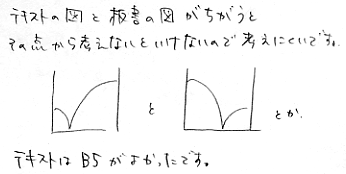 テキストの図と板書の図がちがうと
その点から考えないといけないので考えにくいです。
と
とか.
テキストはB5がよかったです。